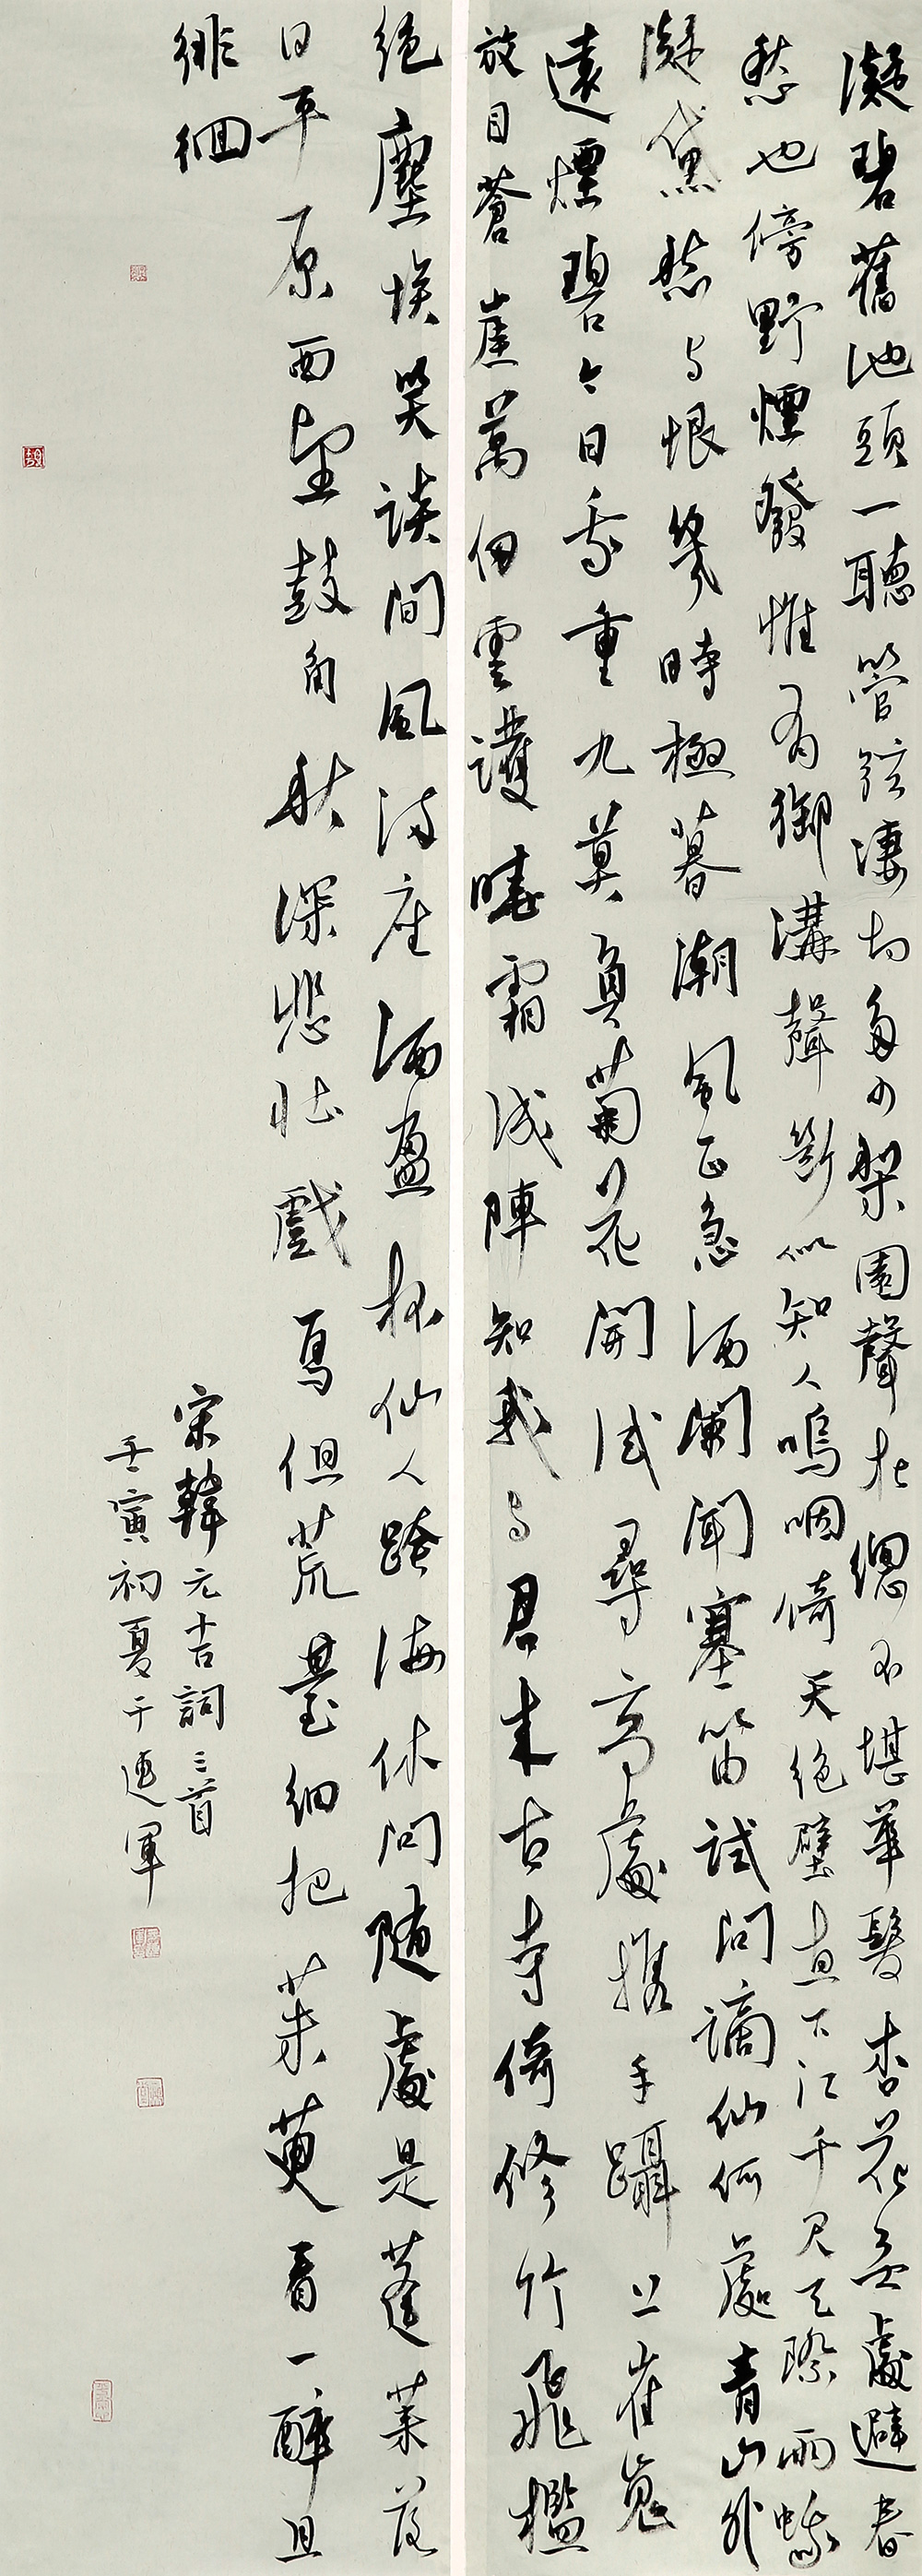 凝碧舊池頭一聽管弦凄切多少梨園聲在總不堪華髮杏花無處避春
愁也傍野煙發惟有御溝聲斷似知人嗚咽倚天絕壁直下江千尺天際兩蛾
凝黛愁與恨幾時極暮潮風正急酒闌聞塞笛試問謫仙何處青山外
遠煙碧今日我重九莫負菊花開試尋高處攜手躡上崔嵬
放目蒼崖萬仞雲護曉霜成陣知我與君來古寺倚修竹飛檻
絕塵埃笑談間風滿座酒盈杯仙人跨海休問隨處是蓬萊落
日平原西望鼓角秋深悲壯戲馬但荒臺細把茱萸看一醉且
徘徊
宋韓元吉詞三首
壬寅初夏于軍